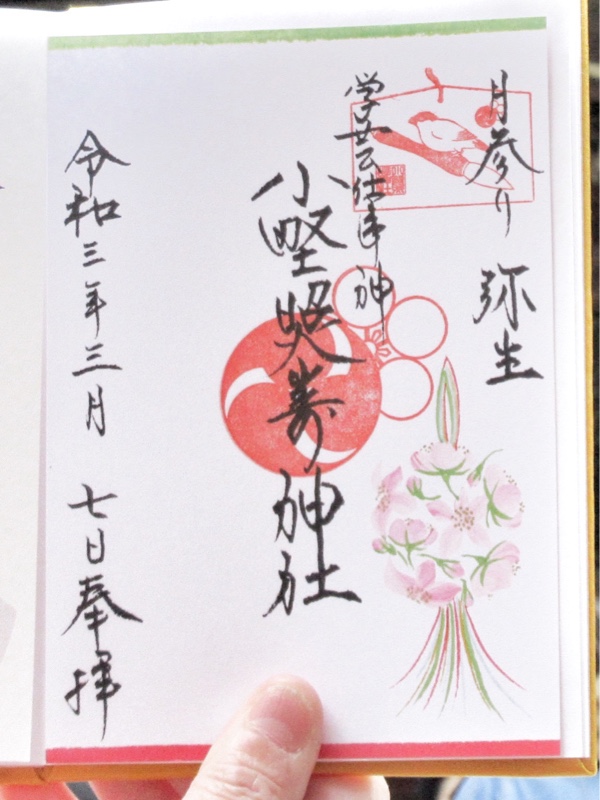 月参り 弥生
学芸仕事神
小野照嵜神社
令和三年三月 七日奉拝